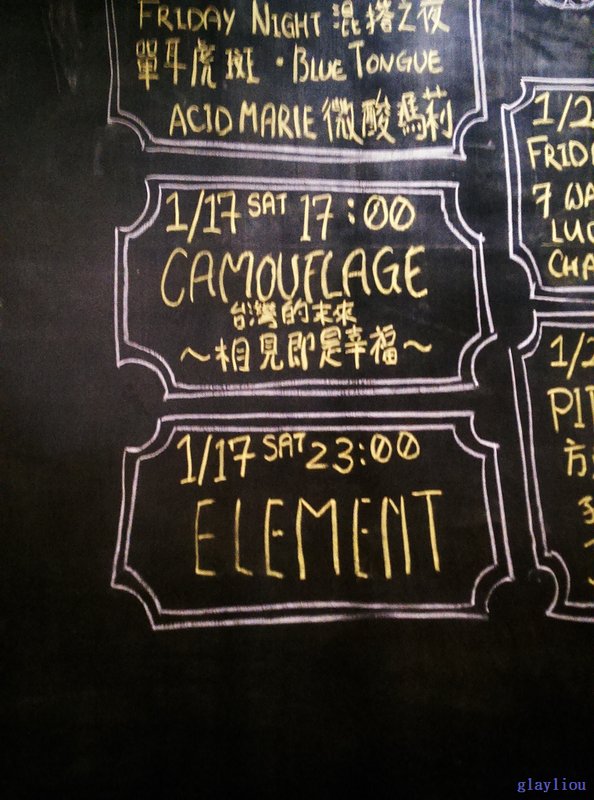 FRIDAY NIGHT 混搭之夜
單耳虎斑·BLUE TONGUE
ACID MARIE 微酸瑪莉
1/17 SAT 17:00
CAMOUFLAGE
台灣的未來
~相見即是幸福~
1/17 SAT 23:00
ELEMENT
1/2
FRID
7 WA
LUC
CHA
1/2
PI
方
glayliou